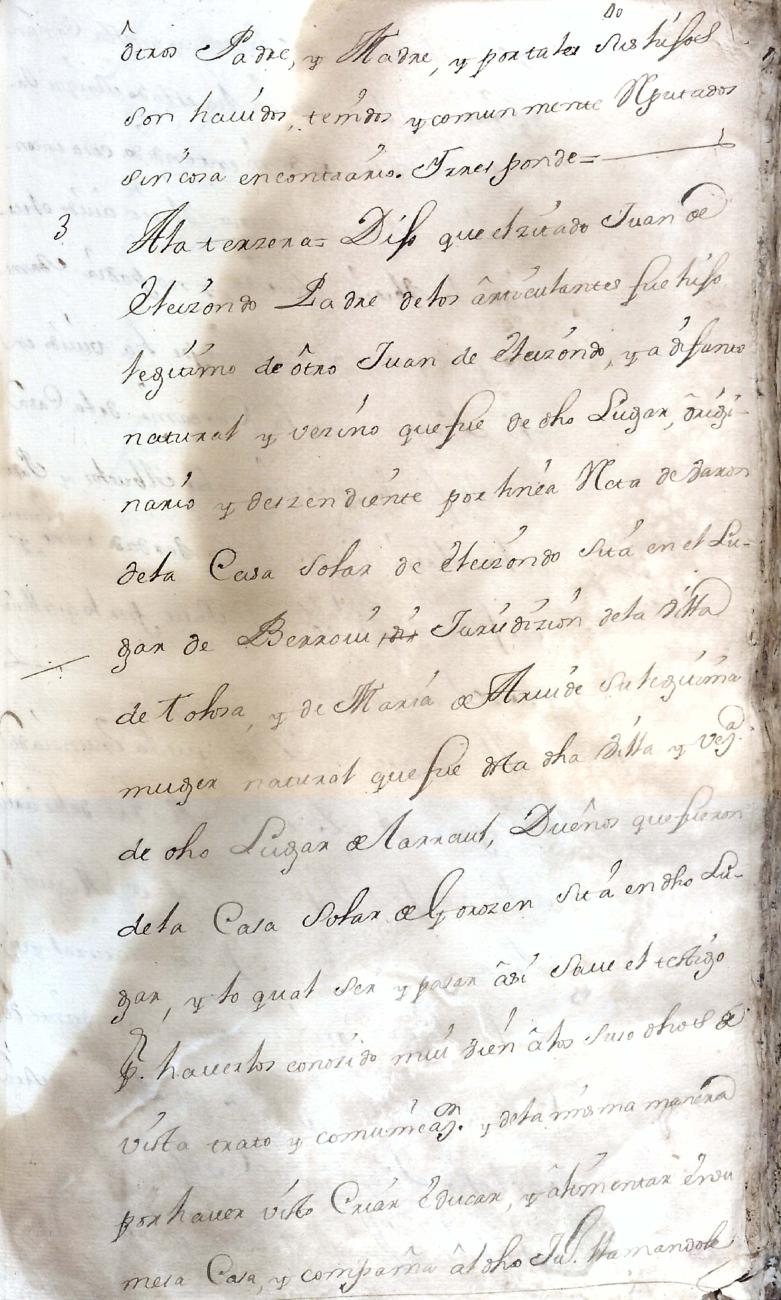 dĥos Padre, y Madre, y por tales sus hijos
son hauidos, tenidos y comunmente Rputados
sin cosa en contrario. Y responde=
3 A la terzera= Dijo que el zitado Juan de
Eleizondo Padre de los articulantes fue hijo
legitimo de ôtro Juan de Eleizondo, ya difunto
natural y vezino que fue de dho Lugar, ôrigi-
nario y deszendiente por linea Recta de baron
de la Casa Solar de Eleizondo sita en el Lu-
gar de Berrovi Jurisdizion de la Villa
de Tolosa, y de Maria de su legitima
muger natural que fue de la dha Villa y vezª.
de dho Lugar de Larraul, Dueños que fueron
de la Casa Solar de sita en dho Lu-
gar, y lo qual ser y pasar âsi saue el testigo
p. hauerlos conosido mui bien âlos suso dhos de
vista trato y comunicaᵒⁿ. y de la misma manera
por hauer visto Criar Educar, y âlimentar en su
mesa Casa, y compañia âl dho Juº. llamandole